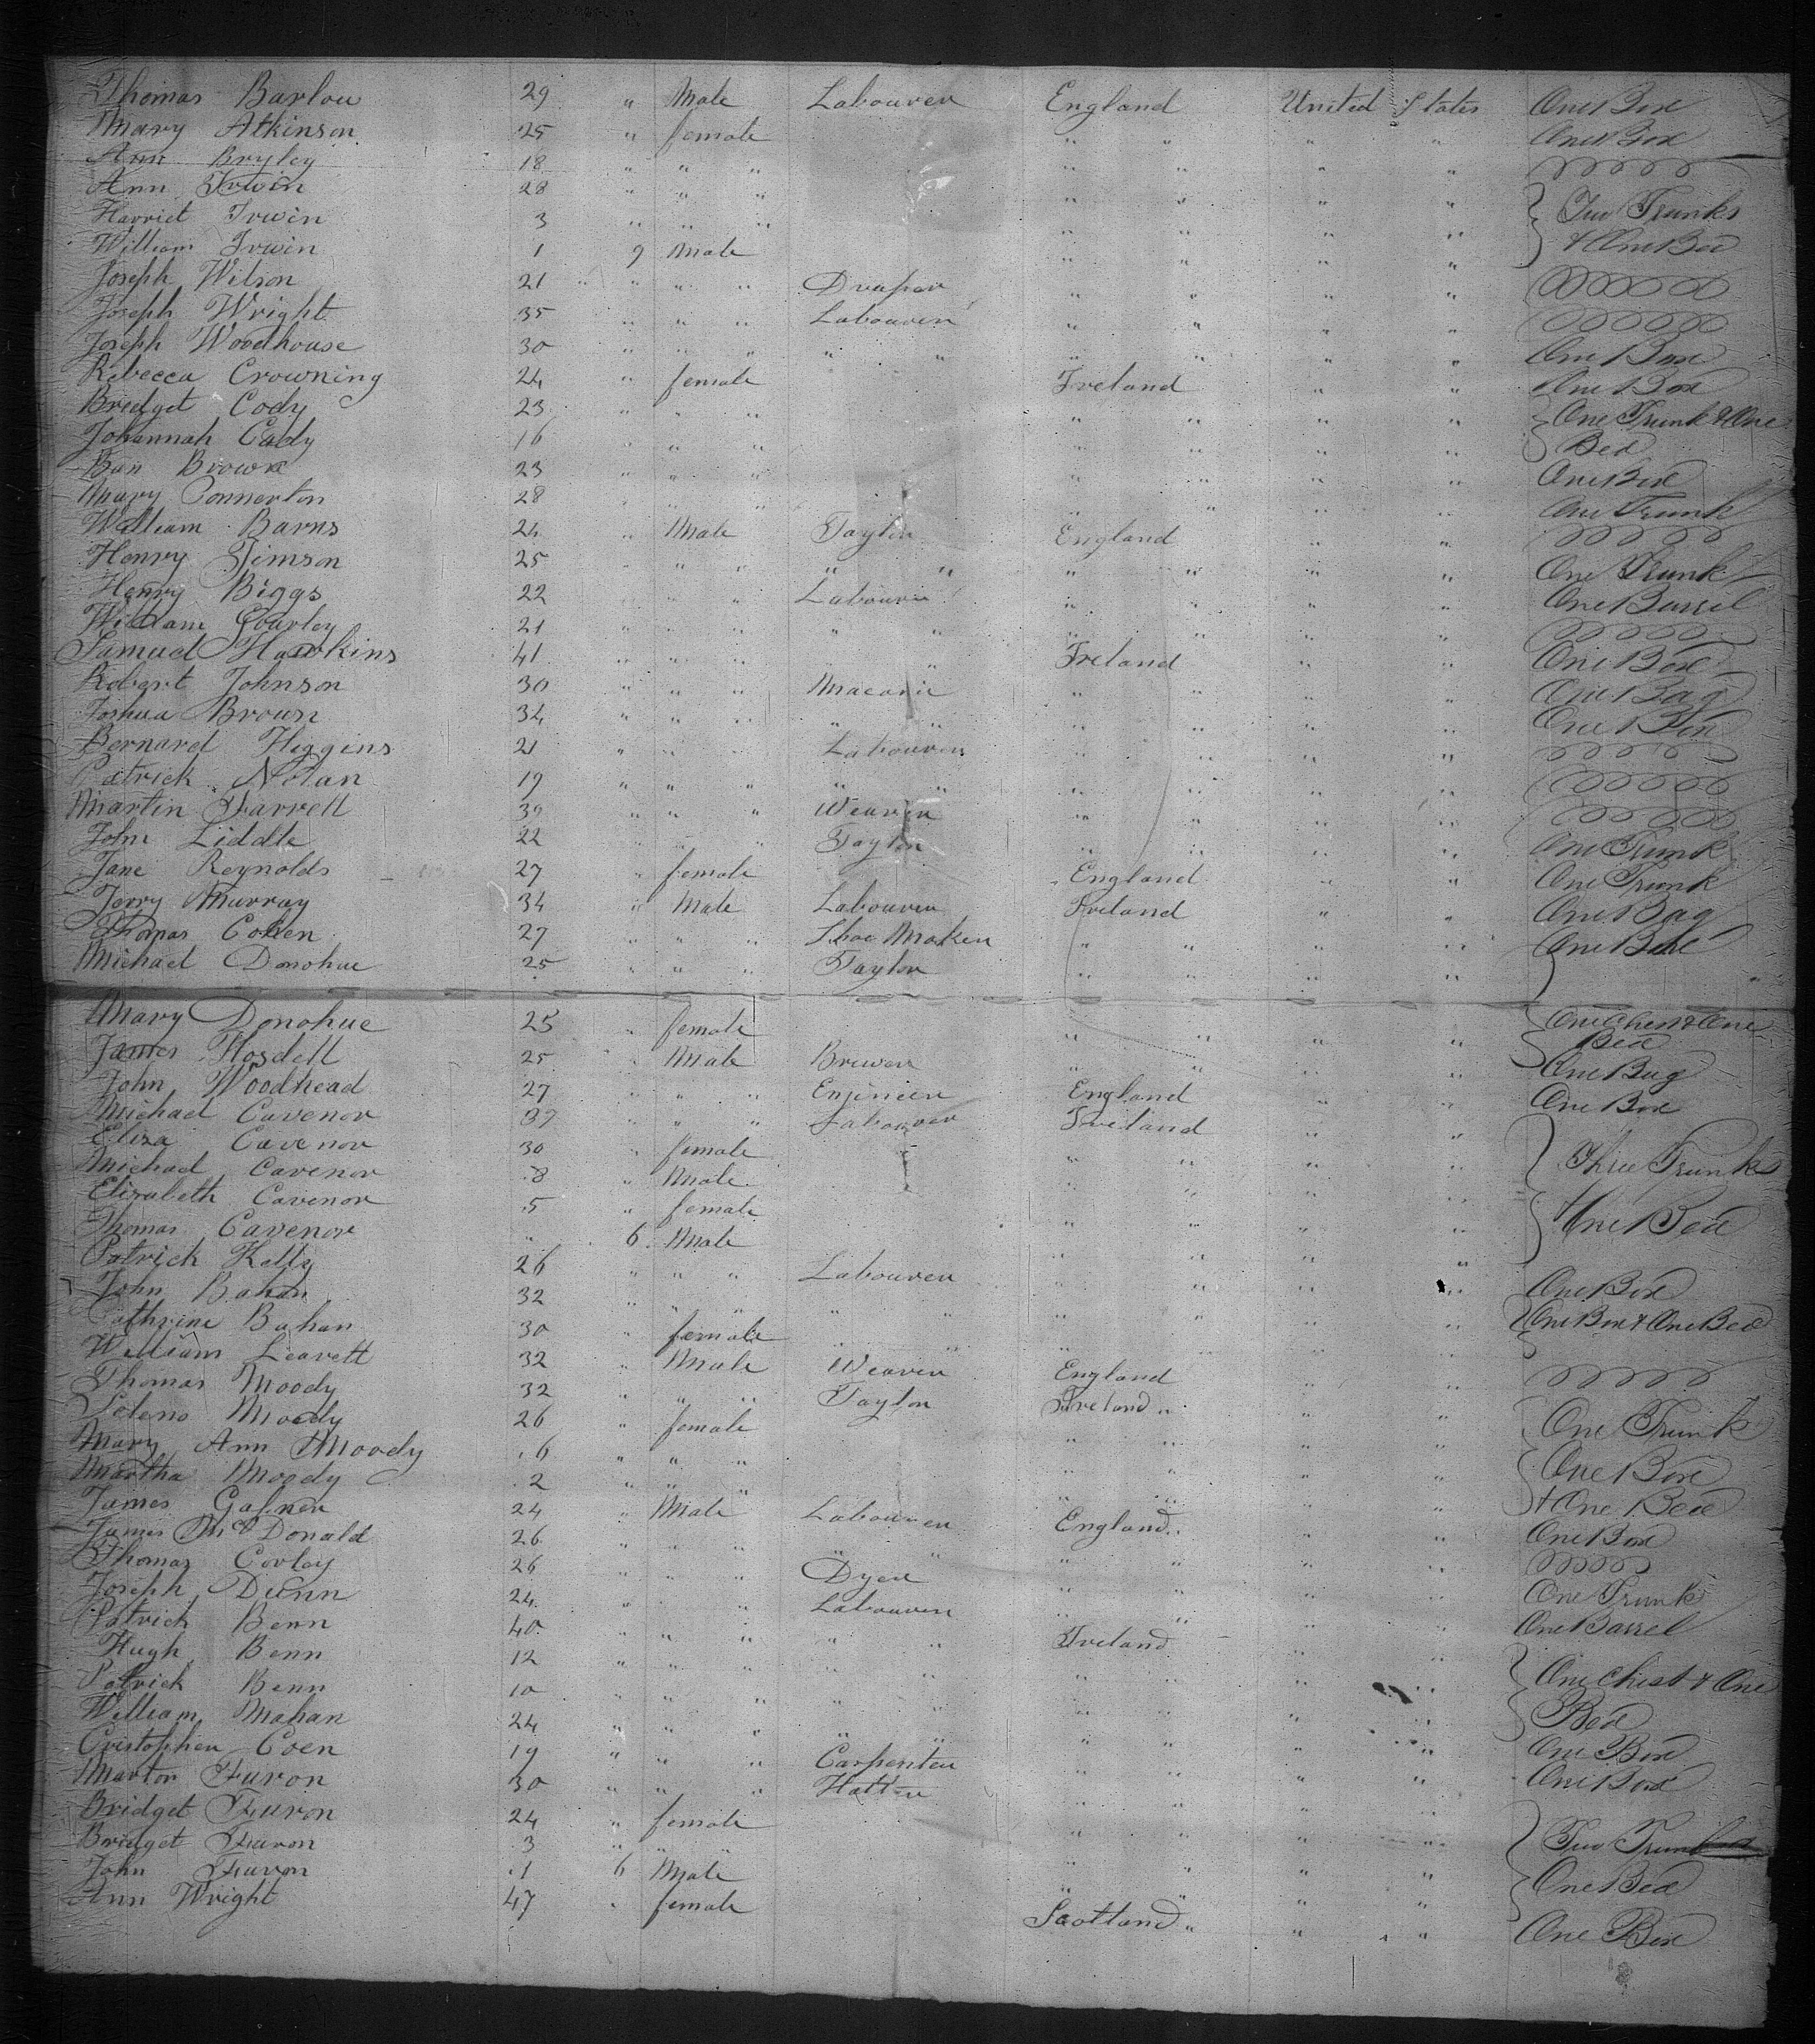 Thomas Barlow 29 " Male Labourer England United States One Box
Mary Atkinson 25 " female " " " " One Box
Ann Bryley 18 " " " " " " "
Ann Irwin 28 " " " " " " " Two Trunks
Harriet Irwin 3 " " " " " " "
William Irwin 1 9 Male " " " " & One Bed
Joseph Wilson 21 " " " Draper " " " "
Joseph Wright 35 " " " Labourer " " " "
Joseph Woodhouse 30 " " " " " " " " " One Box
Rebecca Crowning 24 " female Ireland " " One Box
Bridget Cody 23 " " " " " " " One Trunk & One
Johannah Cady 16 " " " " " " " Bed
Brown 23 " " " " " " " One Box
Mary Connerton 28 " " " " " " " One Trunk
William Barns 24 " Male Taylor England " "
Henry Simson 25 " " " " " " " " " One Trunk
Henry Biggs 22 " " " Labourer " " " " One Barrel
William Gourley 21 " " " " " " " " "
Samuel Hawkins 41 " " " " " Ireland " " One Box
Robert Johnson 30 " " " Macanic " " " " One Bag
Joshua Brown 34 " " " " " " " " " One Box
Bernard Higgins 21 " " " Labourer " " " "
Patrick Nolan 19 " " " " " " " " "
Martin Farrell 39 " " " Weaver " " " "
John Liddle 22 " " " Taylor " " " " One Trunk
Jane Reynolds 27 " female England " " One Trunk
Jerry Murray 34 " Male Labourer Ireland " " One Bag
Thomas Cohen 27 " " " Shoe Maker " " " " One Box
Michael Donohue 25 " " " Taylor " " " "
Mary Donohue 25 " female " " " " One Chest & One
Bed
James Hosdell 25 " Male Brewer " " " " One Bag
John Woodhead 27 " " " Enjineer England " " One Box
Michael Cavenor 37 " " " Labourer Ireland " "
Eliza Cavenor 30 " female " " " " Three Trunks
Michael Cavenor 8 " Male " " " "
Elizabeth Cavenor 5 " female " " " " & One Bed
Thomas Cavenor " 6 Male " " " "
Patrick Kelly 26 " " " Labourer " " " " One Box
John Bahan 32 " " " " " " " " " One Box & One Bed
Cathrine Bahan 30 " female " " " " " "
William Leavett 32 " Male Weaver England " "
Thomas Moody 32 " " " Taylor Ireland " " One Trunk
Seleno Moody 26 " female " " " "
Mary Ann Moody 6 " " " " " " " One Box
Martha Moody 2 " " " " " " " & One Bed
James Gafner 24 " Male Labourer England " " One Box
James McDonald 26 " " " " " " " " "
Thomas Corley 26 " " " Dyer " " " " One Trunk
Joseph Dunn 24 " " " Labourer " " " " One Barrel
Patrick Benn 40 " " " " " Ireland " "
Hugh Benn 12 " " " " " " " " " One Chest & One
Patrick Benn 10 " " " " " " " " " Bed
William Mahan 24 " " " " " " " " " One Box
Cristopher Coen 19 " " " Carpenter " " " " One Box
Marton Furon 30 " " " Hatter " " " "
Bridget Furon 24 " female " " " " Two Trunks
Bridget Furon 3 " " " " " " "
John Furon 1 6 Male " " " " One Bed
Ann Wright 47 " female Scotland " " One Box